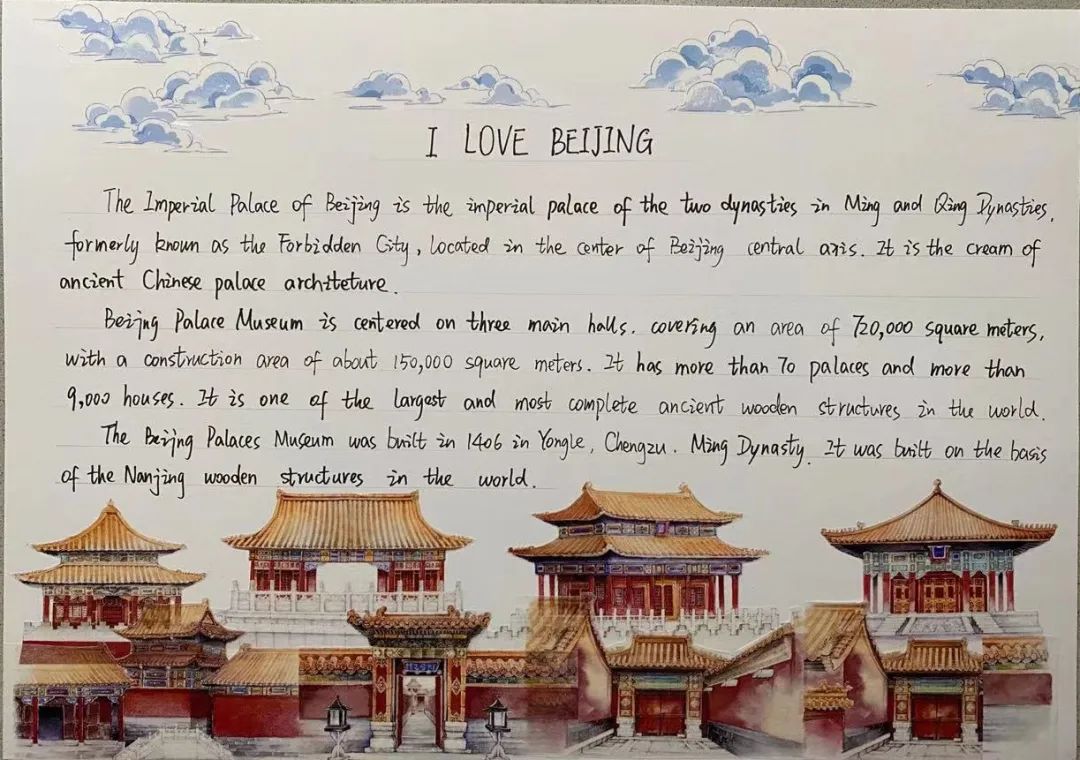 I LOVE BEIJING
The Imperial Palace of Beijing is the imperial palace of the two dynasties in Ming and Qing Dynasties,
formerly known as the Forbidden City, located in the center of Beijing central axis. It is the cream of
ancient Chinese palace architeture.
Beijng Palace Museum is centered on three main halls. covering an area of 720,000 square meters,
with a construction area of about 150,000 square meters. It has more than 70 palaces and more than
9,000 houses. It is one of the largest and most complete ancient wooden structures in the world.
The Beijng Palaces Museum was built in 1406 in Yongle, Chengzu. Ming Dynasty. It was built on the basis
of the Nanjing wooden structures in the world.